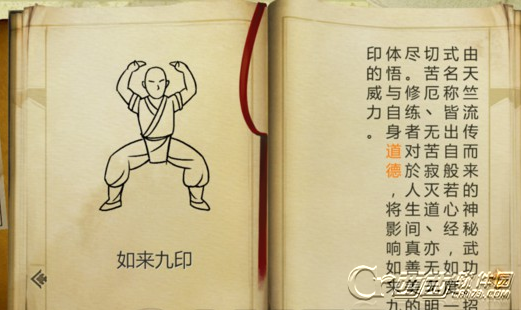 如来九印
由天竺流传而来的神秘武功招
式名称皆出自般若心经，如度一
切苦厄、无苦寂灭道、亦无无明
尽。修练者对於人生间真善美的
体悟与自身道德，将影响如来九
印的威力。
软件园